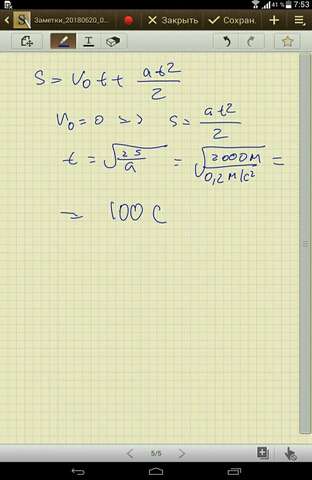 41 % 7:53
Заметки_20180620_0... Закрыть Сохран.
S = V₀ t + at²/2
V₀ = 0 => S = at²/2
t = √(2s/a) = √(2000м/0,2 м/с²) =
= 100 с
5/5